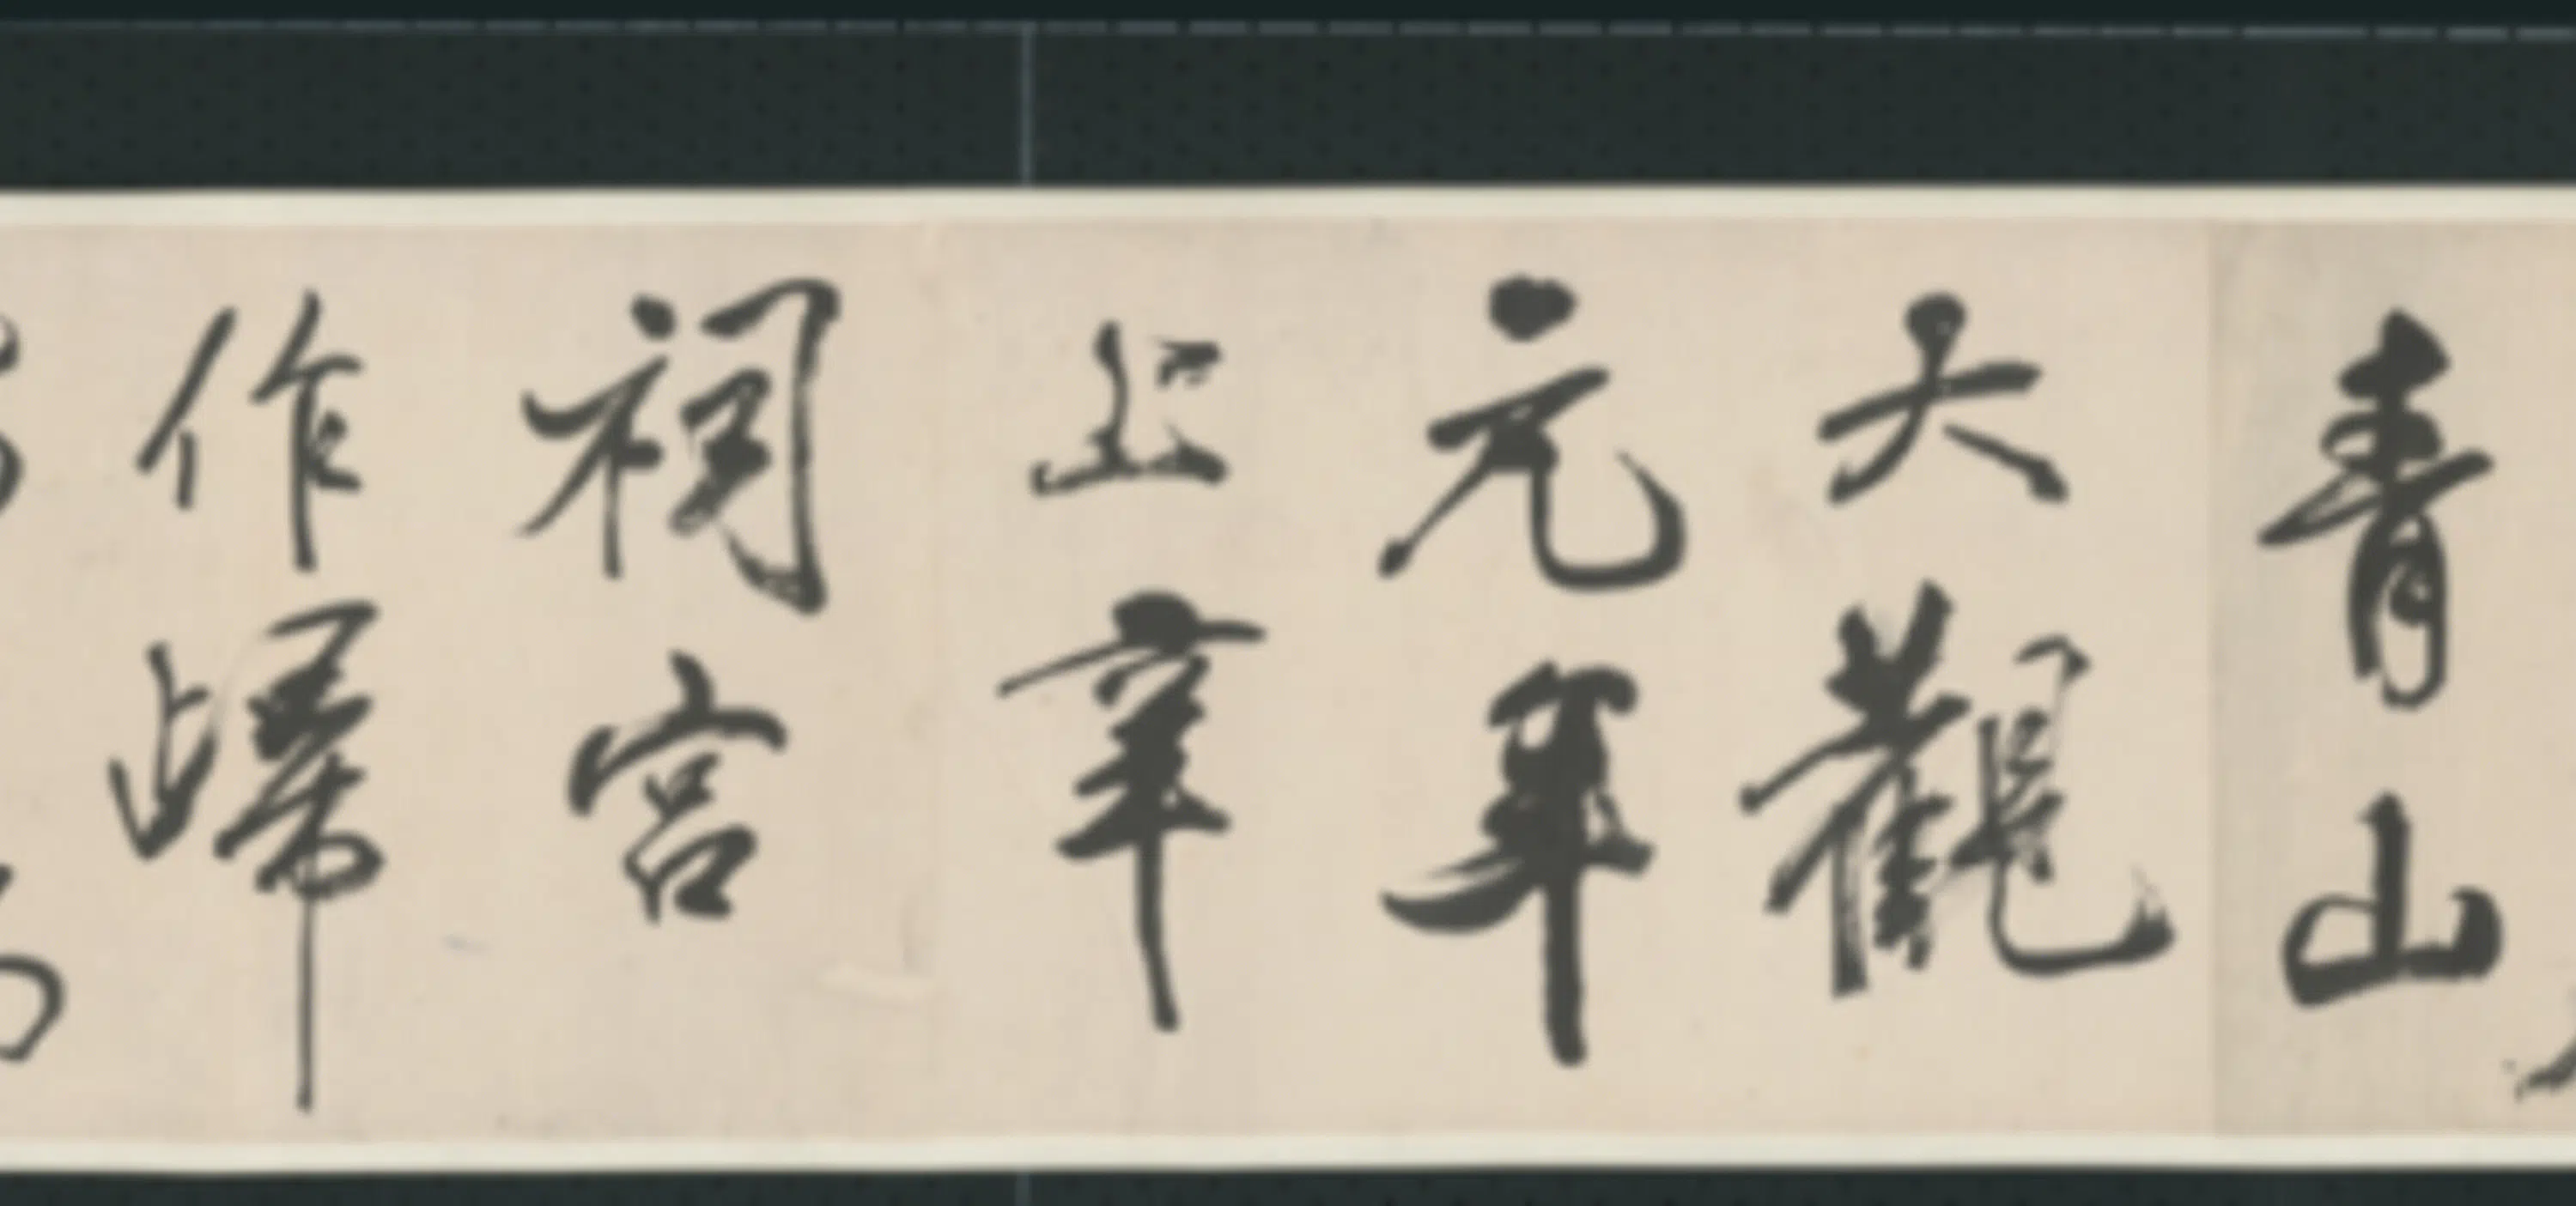 青山
大觀
元年
上章
祠宮
作歸